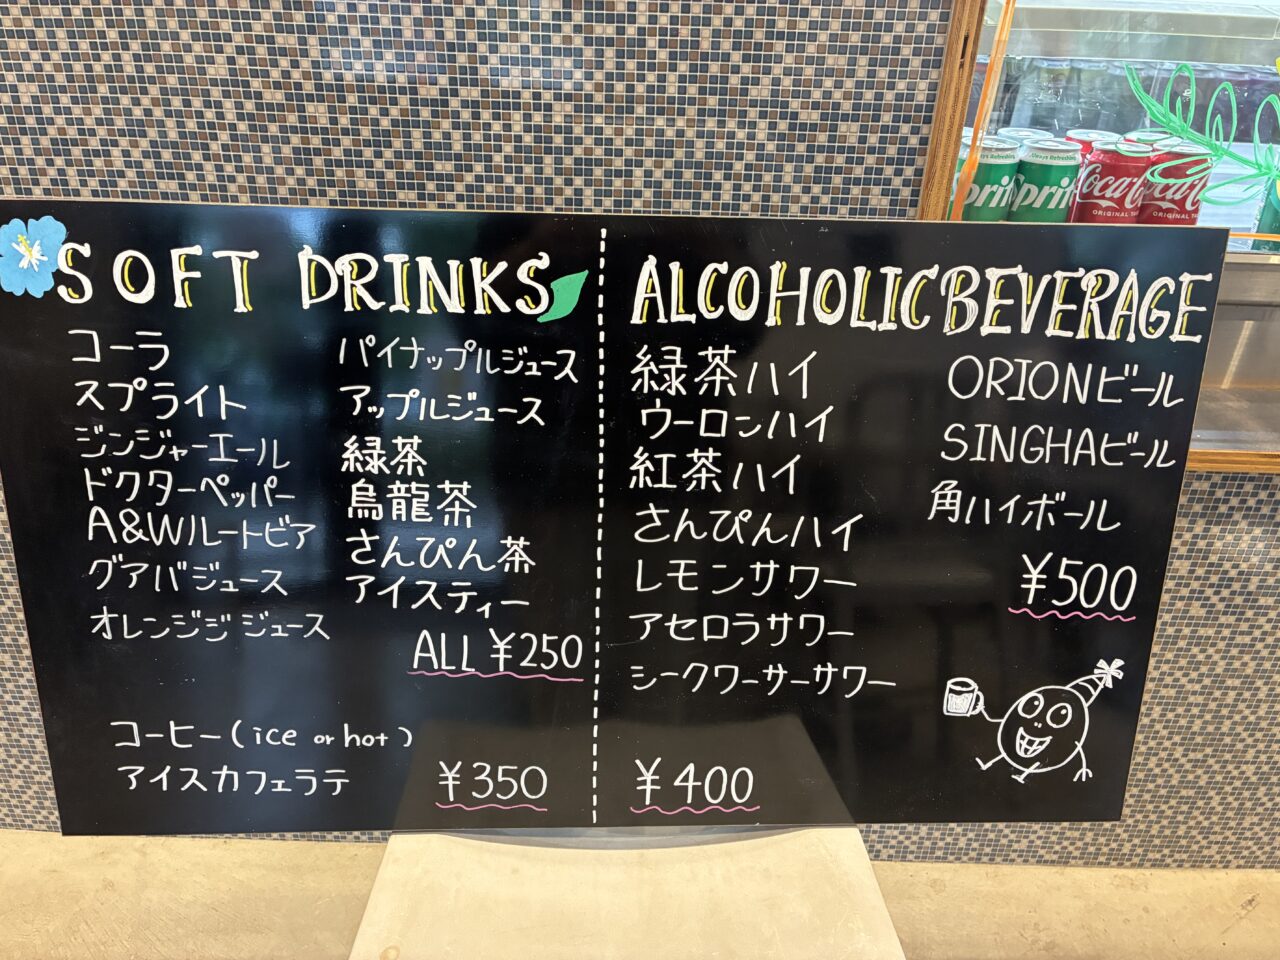 SOFT DRINKS
コーラ
スプライト
ジンジャーエール
ドクターペッパー
A&Wルートビア
グアバジュース
オレンジジュース
パイナップルジュース
アップルジュース
緑茶
烏龍茶
さんぴん茶
アイスティー
ALL ¥250
コーヒー(ice or hot)
アイスカフェラテ
¥350
ALCOHOLIC BEVERAGE
緑茶ハイ
ウーロンハイ
紅茶ハイ
さんぴんハイ
レモンサワー
アセロラサワー
シークワーサーサワー
¥400
ORIONビール
SINGHAビール
角ハイボール
¥500
Always Refreshing
Sprite
Sprite
Coca-Cola
ORIGINAL TASTE
Coca-Cola
ORIGINAL TASTE